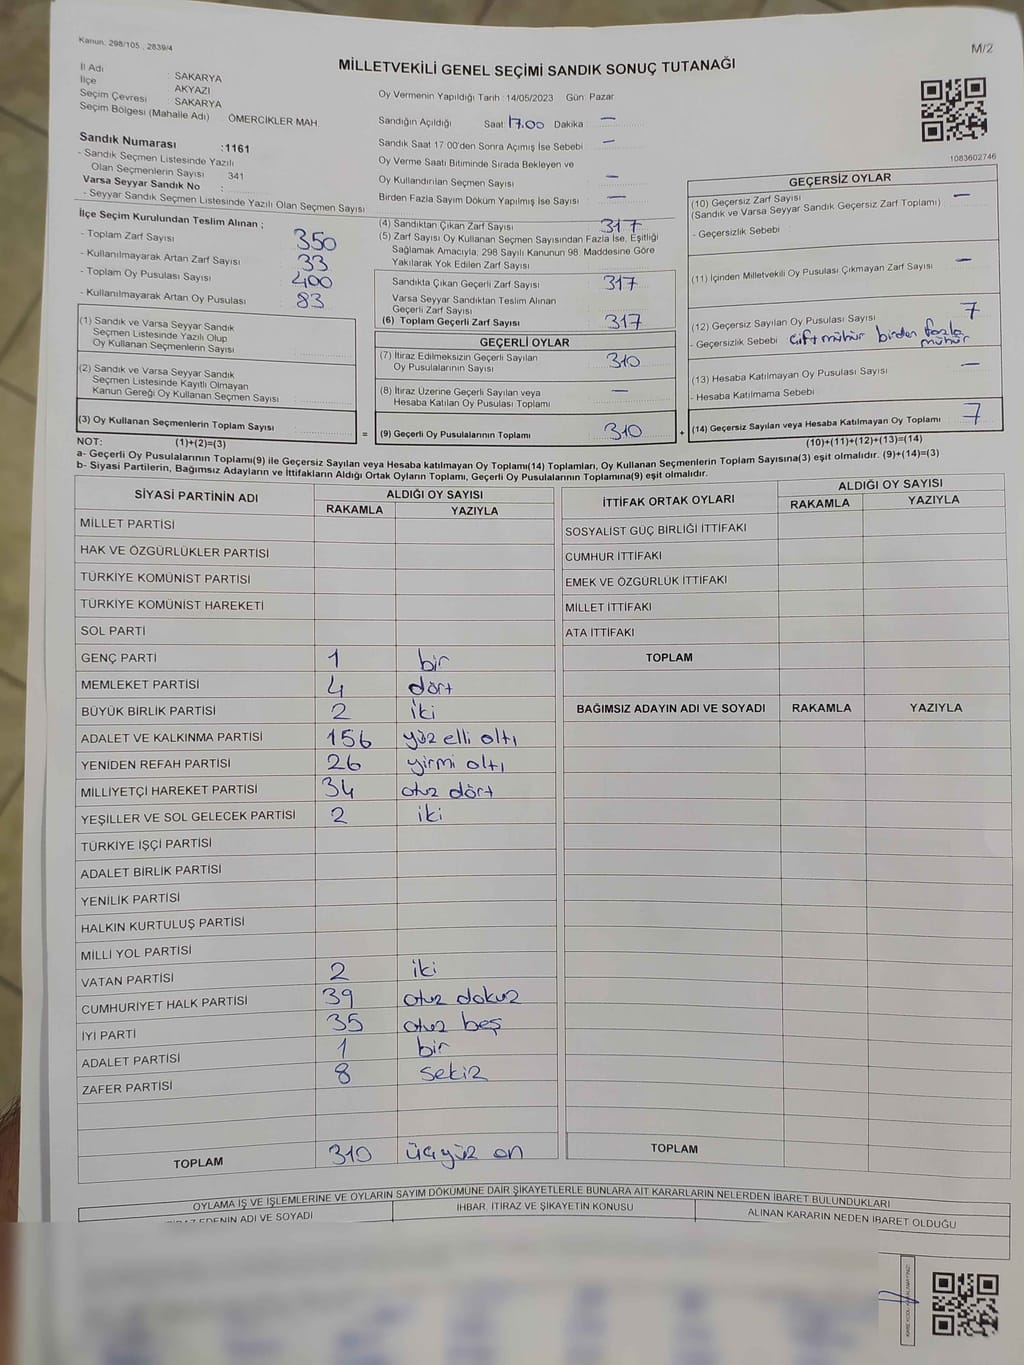 Kanun: 298/105 , 2839/4
M/2
MİLLETVEKİLİ GENEL SEÇİMİ SANDIK SONUÇ TUTANAĞI
İl Adı : SAKARYA
İlçe AKYAZI
Seçim Çevresi : SAKARYA
Seçim Bölgesi (Mahalle Adı) : ÖMERCİKLER MAH.
Sandık Numarası :1161
- Sandık Seçmen Listesinde Yazılı
Olan Seçmenlerin Sayısı 341
Varsa Seyyar Sandık No :
- Seyyar Sandık Seçmen Listesinde Yazılı Olan Seçmen Sayısı
Oy Vermenin Yapıldığı Tarih :14/05/2023 Gün: Pazar
Sandığın Açıldığı Saat 17.00 Dakika —
Sandık Saat 17:00'den Sonra Açımış İse Sebebi —
Oy Verme Saati Bitiminde Sırada Bekleyen ve
Oy Kullandırılan Seçmen Sayısı —
Birden Fazla Sayım Döküm Yapılmış İse Sayısı —
1083602746
İlçe Seçim Kurulundan Teslim Alınan ;
- Toplam Zarf Sayısı 350
- Kullanılmayarak Artan Zarf Sayısı 33
- Toplam Oy Pusulası Sayısı 400
- Kullanılmayarak Artan Oy Pusulası 83
(1) Sandık ve Varsa Seyyar Sandık
Seçmen Listesinde Yazılı Olup
Oy Kullanan Seçmenlerin Sayısı
(2) Sandık ve Varsa Seyyar Sandık
Seçmen Listesinde Kayıtlı Olmayan
Kanun Gereği Oy Kullanan Seçmen Sayısı
(3) Oy Kullanan Seçmenlerin Toplam Sayısı =
(4) Sandıktan Çıkan Zarf Sayısı 317
(5) Zarf Sayısı Oy Kullanan Seçmen Sayısından Fazla İse, Eşitliği
Sağlamak Amacıyla, 298 Sayılı Kanunun 98. Maddesine Göre
Yakılarak Yok Edilen Zarf Sayısı
Sandıkta Çıkan Geçerli Zarf Sayısı 317
Varsa Seyyar Sandıktan Teslim Alınan
Geçerli Zarf Sayısı
(6) Toplam Geçerli Zarf Sayısı 317
GEÇERLİ OYLAR
(7) İtiraz Edilmeksizin Geçerli Sayılan
Oy Pusulalarının Sayısı 310
(8) İtiraz Üzerine Geçerli Sayılan veya
Hesaba Katılan Oy Pusulası Toplamı —
(9) Geçerli Oy Pusulalarının Toplamı 310 +
GEÇERSİZ OYLAR
(10) Geçersiz Zarf Sayısı
(Sandık ve Varsa Seyyar Sandık Geçersiz Zarf Toplamı) —
- Geçersizlik Sebebi :
(11) İçinden Milletvekili Oy Pusulası Çıkmayan Zarf Sayısı —
(12) Geçersiz Sayılan Oy Pusulası Sayısı 7
- Geçersizlik Sebebi Çift mühür birden fazla
mühür
(13) Hesaba Katılmayan Oy Pusulası Sayısı —
- Hesaba Katılmama Sebebi
(14) Geçersiz Sayılan veya Hesaba Katılmayan Oy Toplamı 7
NOT: (1)+(2)=(3) (10)+(11)+(12)+(13)=(14)
a- Geçerli Oy Pusulalarının Toplamı(9) ile Geçersiz Sayılan veya Hesaba katılmayan Oy Toplamı(14) Toplamları, Oy Kullanan Seçmenlerin Toplam Sayısına(3) eşit olmalıdır. (9)+(14)=(3)
b- Siyasi Partilerin, Bağımsız Adayların ve İttifakların Aldığı Ortak Oyların Toplamı, Geçerli Oy Pusulalarının Toplamına(9) eşit olmalıdır.
SİYASİ PARTİNİN ADI ALDIĞI OY SAYISI
RAKAMLA YAZIYLA
MİLLET PARTİSİ
HAK VE ÖZGÜRLÜKLER PARTİSİ
TÜRKİYE KOMÜNİST PARTİSİ
TÜRKİYE KOMÜNİST HAREKETİ
SOL PARTİ
GENÇ PARTİ 1 bir
MEMLEKET PARTİSİ 4 dört
BÜYÜK BİRLİK PARTİSİ 2 iki
ADALET VE KALKINMA PARTİSİ 156 yüz elli altı
YENİDEN REFAH PARTİSİ 26 yirmi altı
MİLLİYETÇİ HAREKET PARTİSİ 34 otuz dört
YEŞİLLER VE SOL GELECEK PARTİSİ 2 iki
TÜRKİYE İŞÇİ PARTİSİ
ADALET BİRLİK PARTİSİ
YENİLİK PARTİSİ
HALKIN KURTULUŞ PARTİSİ
MİLLİ YOL PARTİSİ
VATAN PARTİSİ 2 iki
CUMHURİYET HALK PARTİSİ 39 otuz dokuz
İYİ PARTİ 35 otuz beş
ADALET PARTİSİ 1 bir
ZAFER PARTİSİ 8 sekiz
TOPLAM 310 üçyüz on
İTTİFAK ORTAK OYLARI ALDIĞI OY SAYISI
RAKAMLA YAZIYLA
SOSYALİST GÜÇ BİRLİĞİ İTTİFAKI
CUMHUR İTTİFAKI
EMEK VE ÖZGÜRLÜK İTTİFAKI
MİLLET İTTİFAKI
ATA İTTİFAKI
TOPLAM
BAĞIMSIZ ADAYIN ADI VE SOYADI RAKAMLA YAZIYLA
TOPLAM
OYLAMA İŞ VE İŞLEMLERİNE VE OYLARIN SAYIM DÖKÜMÜNE DAİR ŞİKAYETLERLE BUNLARA AİT KARARLARIN NELERDEN İBARET BULUNDUKLARI
EDENİN ADI VE SOYADI İHBAR, İTİRAZ VE ŞİKAYETİN KONUSU ALINAN KARARIN NEDEN İBARET OLDUĞU